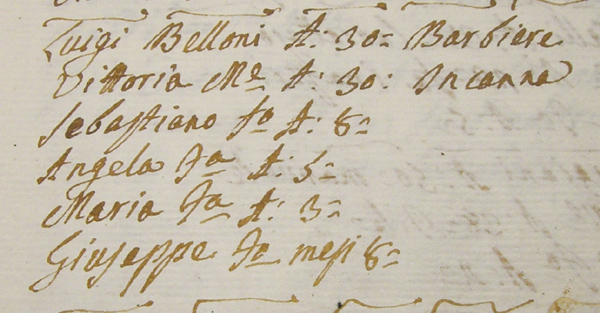 Luigi Belloni A: 30= Barbiere
Vittoria Me A: 30: Incanna
Sebastiano fo A: 8=
Angela fa A: 5=
Maria fa A: 3=
Giuseppe fo mesi 8=